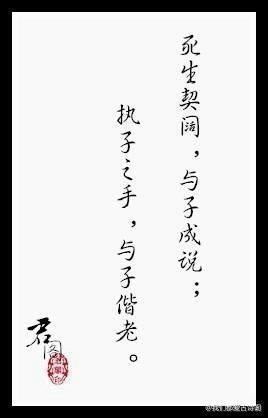 死生契阔，与子成说；
执子之手，与子偕老。
君
阁
@我们都爱古诗词